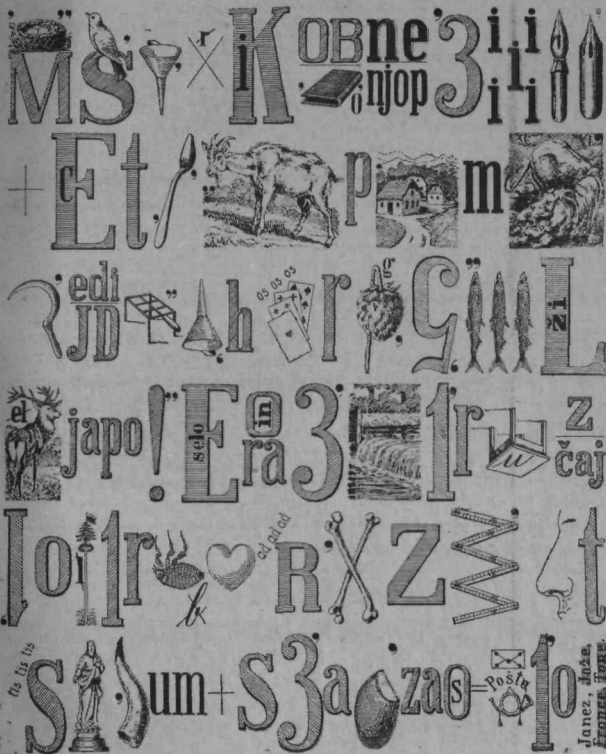 MS r i K OB ne 3 i i i
ó njop i i
+ c E t p m
edi JD h os os os r g 5 ži L
el japo! selo E in O ra 3 1 r u z čaj
1 o i 1 r k ad ad ad R X Z t
tis tis tis S um + S 3 a za o s = Pošta 1 o
Janez, Jože,
Franc, Tone